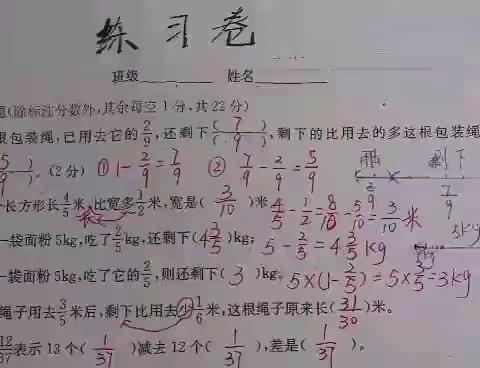 练习卷
班级 姓名
题(除标注分数外,其余每空1分,共22分)
根包装绳,已用去它的2/9,还剩下(7/9),剩下的比用去的多这根包装绳
(5/9)。(2分) ① 1-2/9=7/9 ② 7/9-2/9=5/9 剩下 2/9 7/9
长方形长4/5米,比宽多1/2米,宽是(3/10)米 4/5-1/2=8/10-5/10=3/10米
一袋面粉5kg,吃了2/5kg,还剩下(4 3/5)kg; 5-2/5=4 3/5kg 3kg
一袋面粉5kg,吃了它的2/5,则还剩下(3)kg。 5×(1-2/5)=5×3/5=3kg
绳子用去3/5米后,剩下比用去少1/6米,这根绳子原来长(31/30)米。
12/37表示13个(1/37)减去12个(1/37),差是(1/37)。